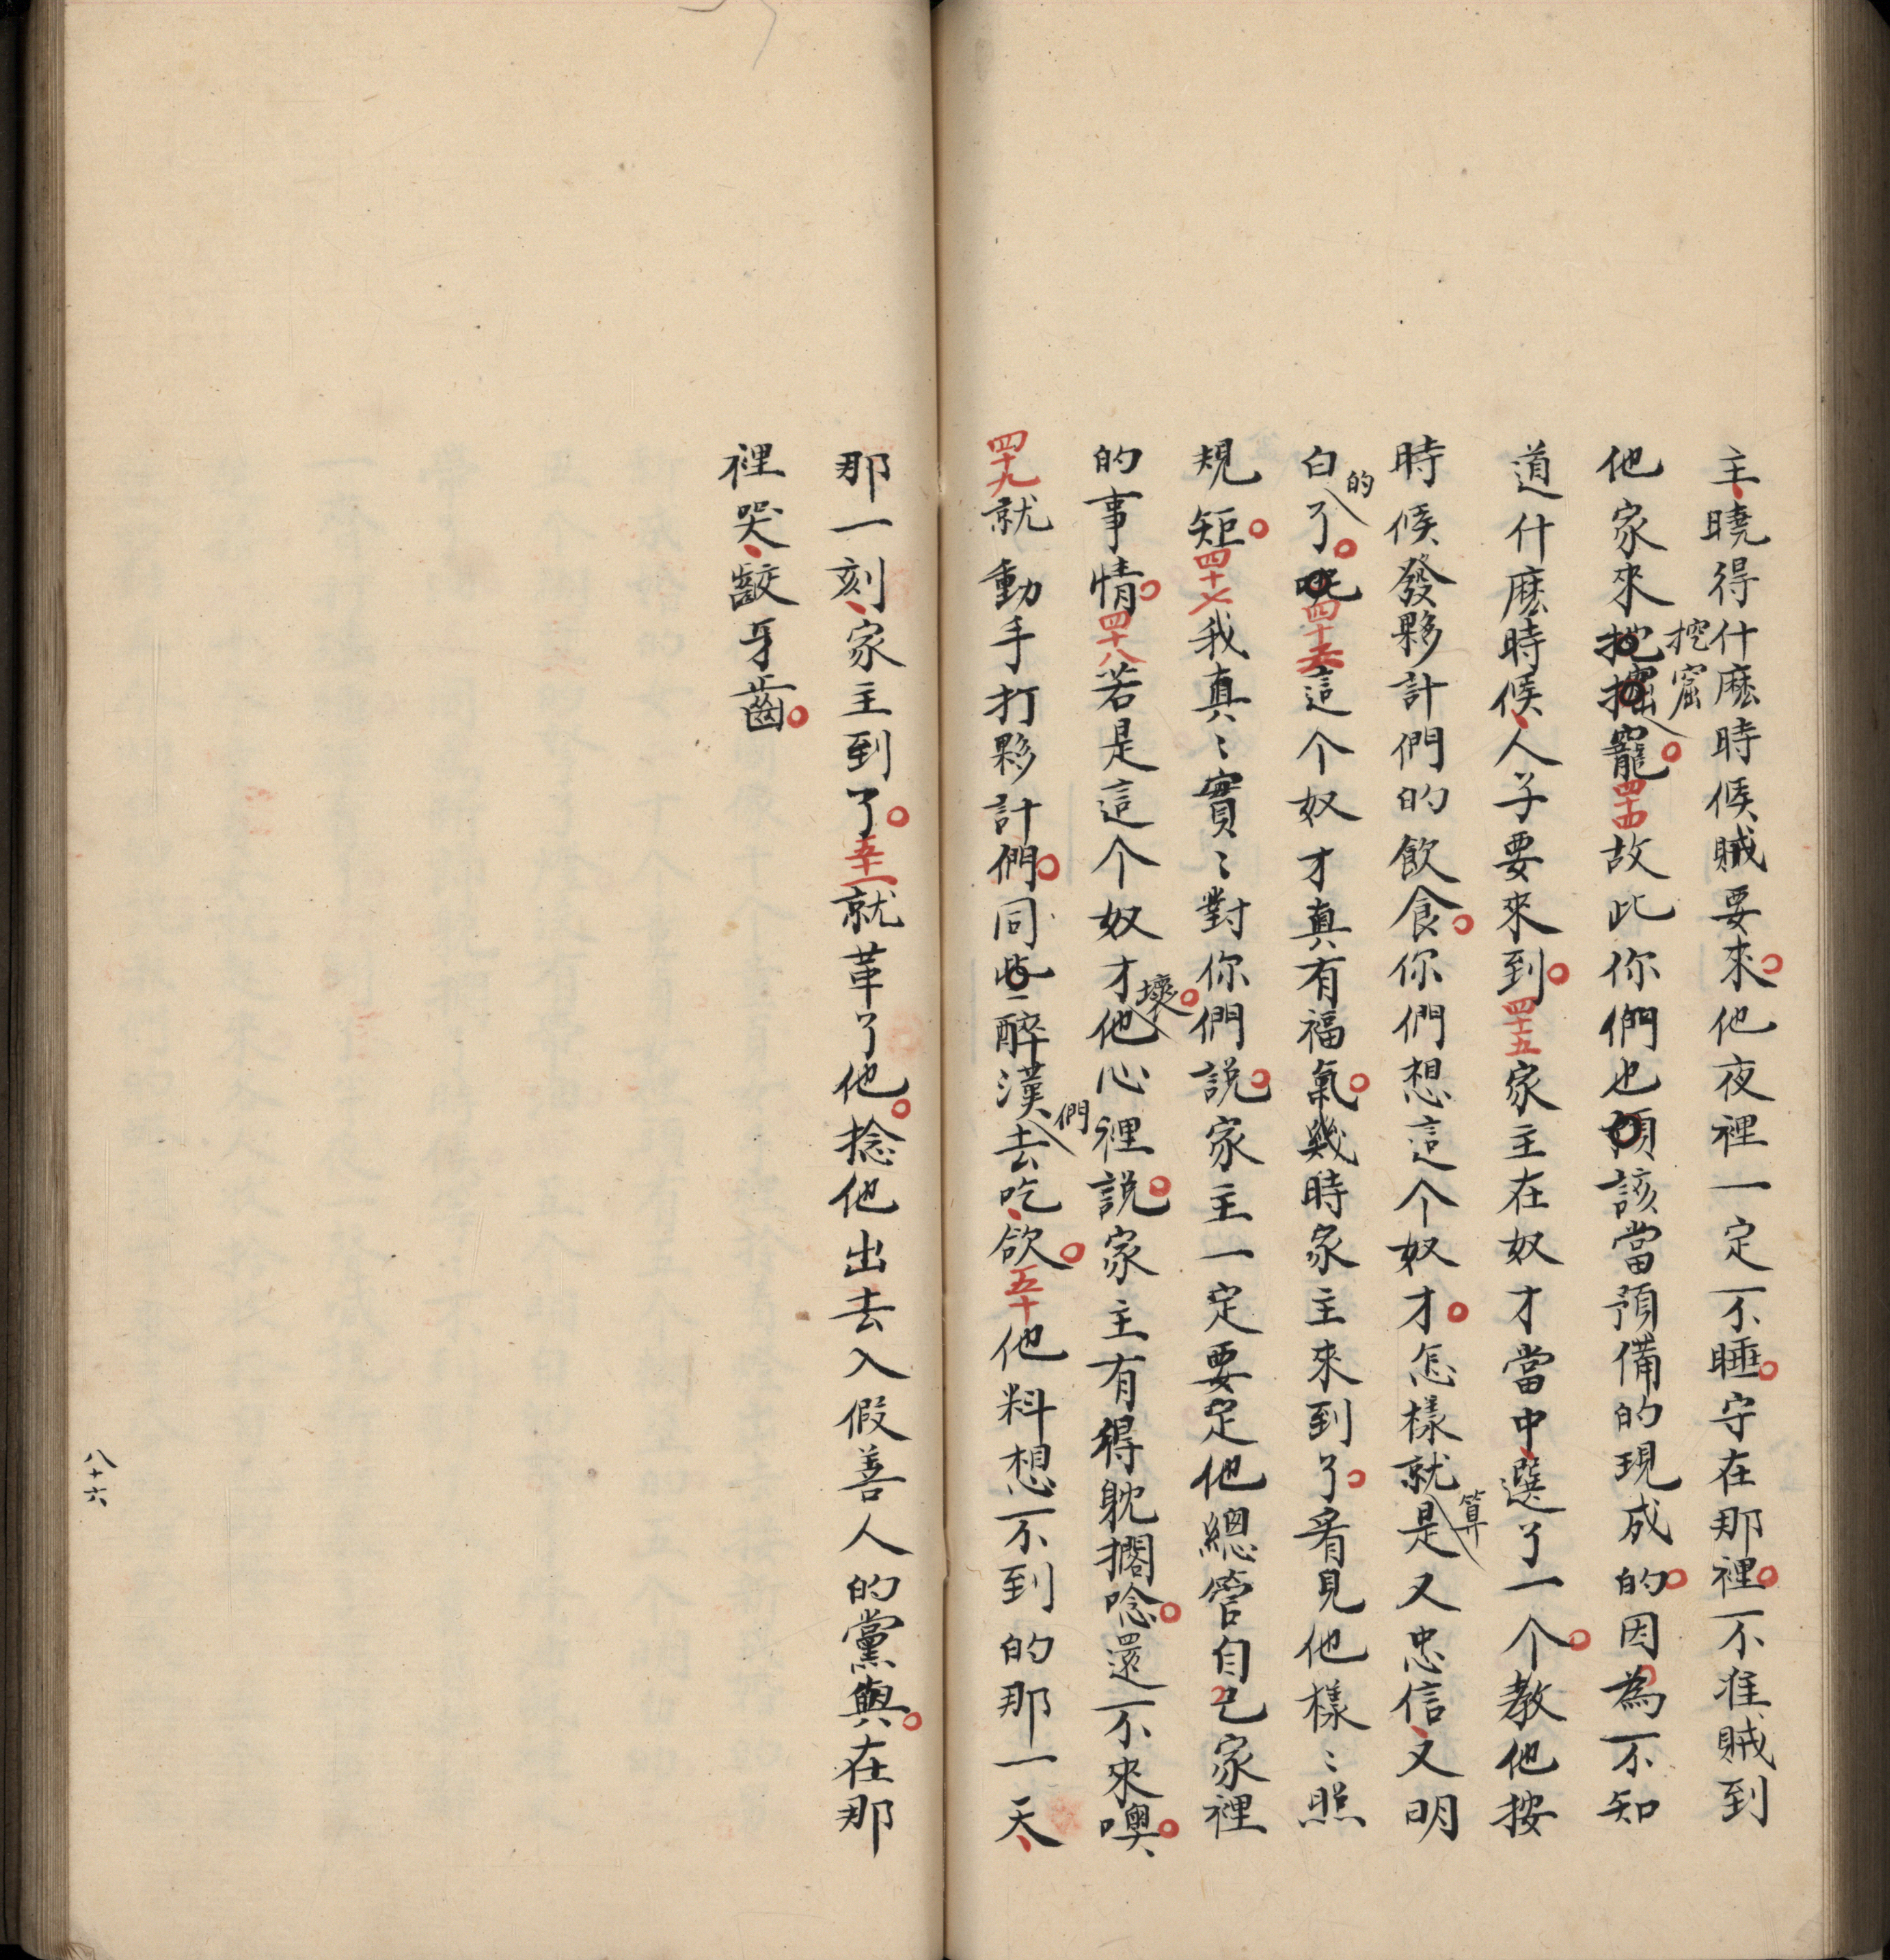 主、曉得什麽時候賊要來。他夜裡一定不睡。守在那裡。不准賊到
他家來挖窟窿。四十四故此你們也該當預備的現成的。因為不知
道什麽時候、人子要來到。四十五家主在奴才當中、選了一个。教他按
時候發夥計們的飲食。你們想這个奴才。怎樣就算是又忠信、又明
白的了。四十六這个奴才真有福氣。幾時家主來到了。看見他樣〻照
規矩。四十七我真〻實〻對你們説。家主一定要定他總管自己家裡
的事情。四十八若是這个奴才壞。他心裡説。家主有得躭擱唸。還不來噢。
四十九就動手打夥計們。同些醉漢們去吃、飲。五十他料想不到的那一天、
那一刻、家主到了。五十一就革了他。捻他出去入假善人的黨與。在那
裡哭、齩牙齒。
八十六